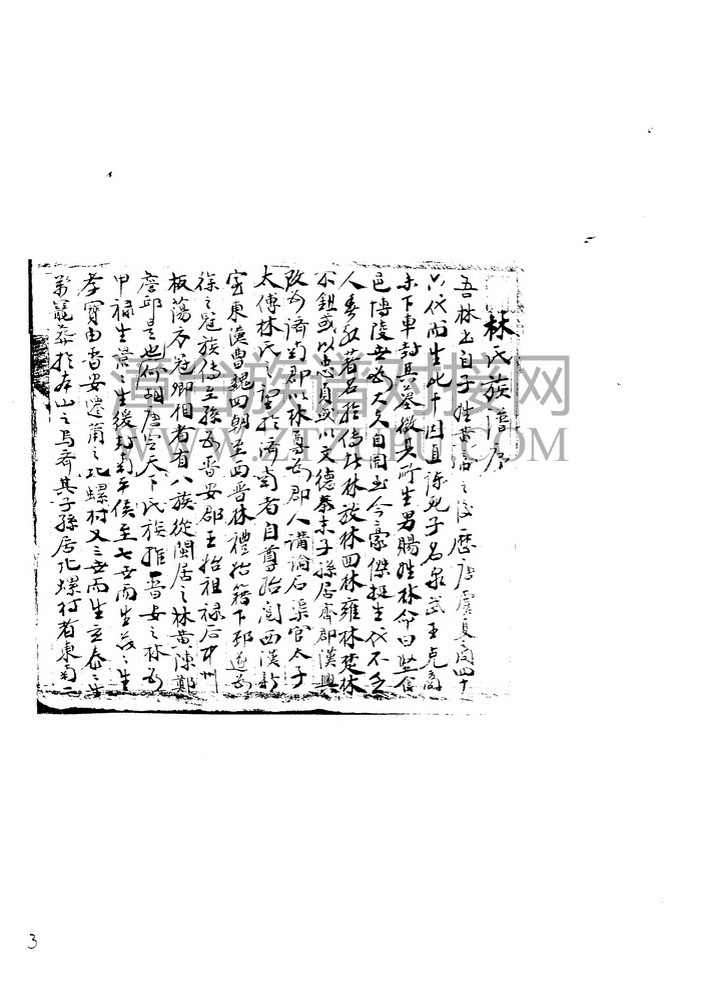 林氏族譜序
吾林出自子姓黃帝之後歷唐虞夏商四十
六代而生比干因直諫死子名泉武王克商
未下車封其墓徵其所生男賜姓林命曰堅食
邑博陵世為大人自周出今豪傑挺生代不乏
人春秋著名於傳者林放林回林雍林楚林
不鈕或以忠貞或以文德秦末子孫居齊郡漢興
改為濟南郡以林尊為郡人講論石渠官太子
太傅林氏望於濟南者自尊始閱西漢新
室東漢曹魏四朝至西晉林禮始籍下邳遂為
徐之冠族傳至孫為晉安郡王始祖祿后中州
板蕩衣冠卿相者有八族從閩居之林黃陳鄭
詹邱是也何胡唐定天下氏族推晉安之林為
甲祿生景之生緩封南平侯至七世而生茂之生
孝寶由晉安遷莆之北螺村又三世而生玄泰之生
萬寵葬於存山之烏齊其子孫居北螺村者東南二
道台族譜對接網
3